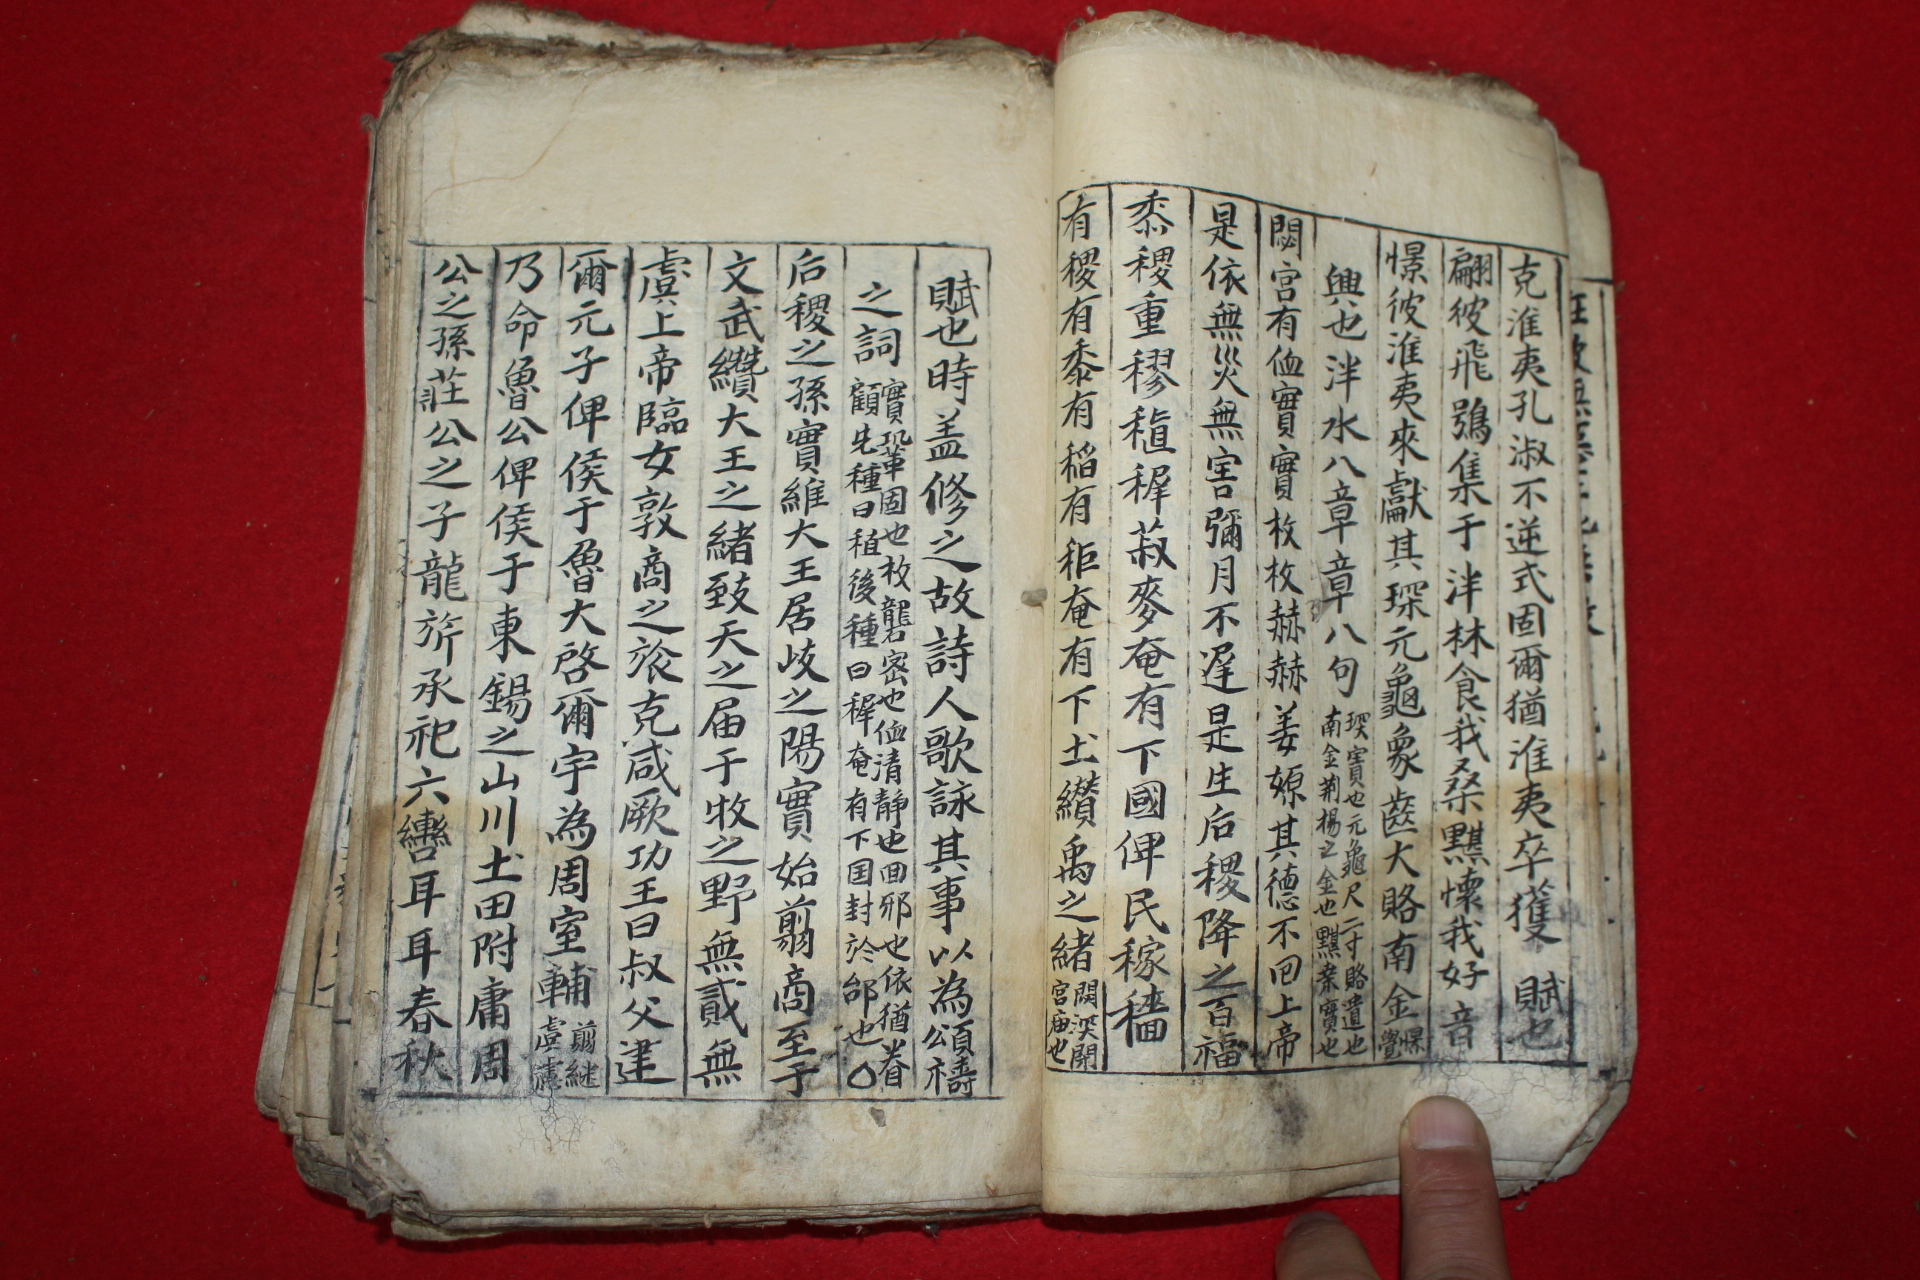 克淮夷孔淑不逆式固爾猶淮夷卒獲 賦也
翩彼飛鴞集于泮林食我桑黮懷我好音
憬彼淮夷來獻其琛元龜象齒大賂南金 憬覺
興也泮水八章章八句 琛寶也元龜尺二寸賂遺也南金荊楊之金也黮桒實也
閟宮有侐實實枚枚赫赫姜嫄其德不回上帝
是依無災無害彌月不遲是生后稷降之百福
黍稷重穋稙稺菽麥奄有下國俾民稼穡
有稷有黍有稻有秬奄有下土纘禹之緒 閟深閉宮庙也
賦也時盖修之故詩人歌詠其事以為頌禱
之詞 實鞏固也枚礱密也侐清靜也回邪也依猶眷顧先種曰稙後種曰稺奄有下国封於邰也○
后稷之孫實維大王居岐之陽實始翦商至于
文武纘大王之緒致天之届于牧之野無貳無
虞上帝臨女敦商之旅克咸厥功王曰叔父建
爾元子俾侯于魯大啓爾宇為周室輔 翦継虞慮
乃命魯公俾侯于東錫之山川土田附庸周
公之孫莊公之子龍旂承祀六轡耳耳春秋